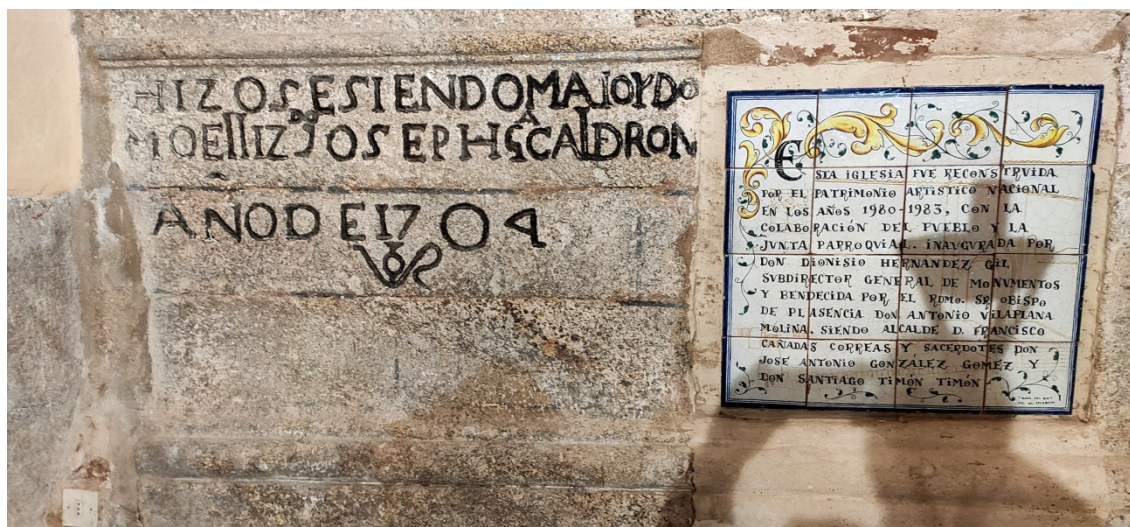 HIZOSESIENDOMAJOYDO
JOSEPHSCCALDRON
AÑODE1704
ESTA IGLESIA FVE RECONSTRVIDA
POR EL PATRIMONIO ARTISTICO NACIONAL
EN LOS AÑOS 1980-1983, CON LA
COLABORACIÓN DEL PVEBLO Y LA
JVNTA PARROQVIAL. INAVGVRADA POR
DON DIONISIO HERNANDEZ GIL
SVBDIRECTOR GENERAL DE MONVMENTOS
Y BENDECIDA POR EL RDMO. SR. OBISPO
DE PLASENCIA DON ANTONIO VILAPLANA
MOLINA. SIENDO ALCALDE D. FRANCISCO
CAÑADAS CORREAS Y SACERDOTES DON
JOSE ANTONIO GONZÁLEZ GOMEZ Y
DON SANTIAGO TIMÓN TIMÓN